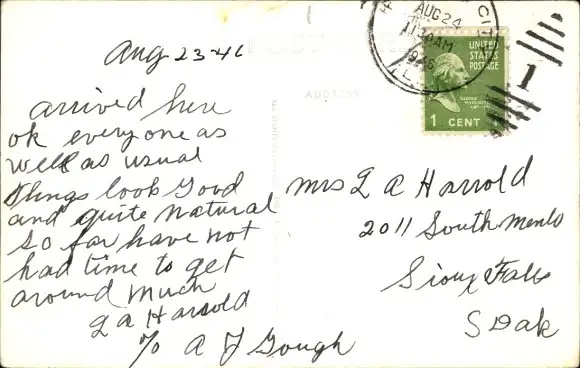 Aug 23-46
arrived here
ok everyone as
well as usual
things look good
and quite natural
so far have not
had time to get
around much
L A Harrold
% A J Gough
ADDRESS
CITY
AUG 24
1130AM
1946
UNITED
STATES
POSTAGE
GEORGE
WASHINGTON
1 CENT
1
Mrs L A Harrold
2011 South Menlo
Sioux Falls
S Dak